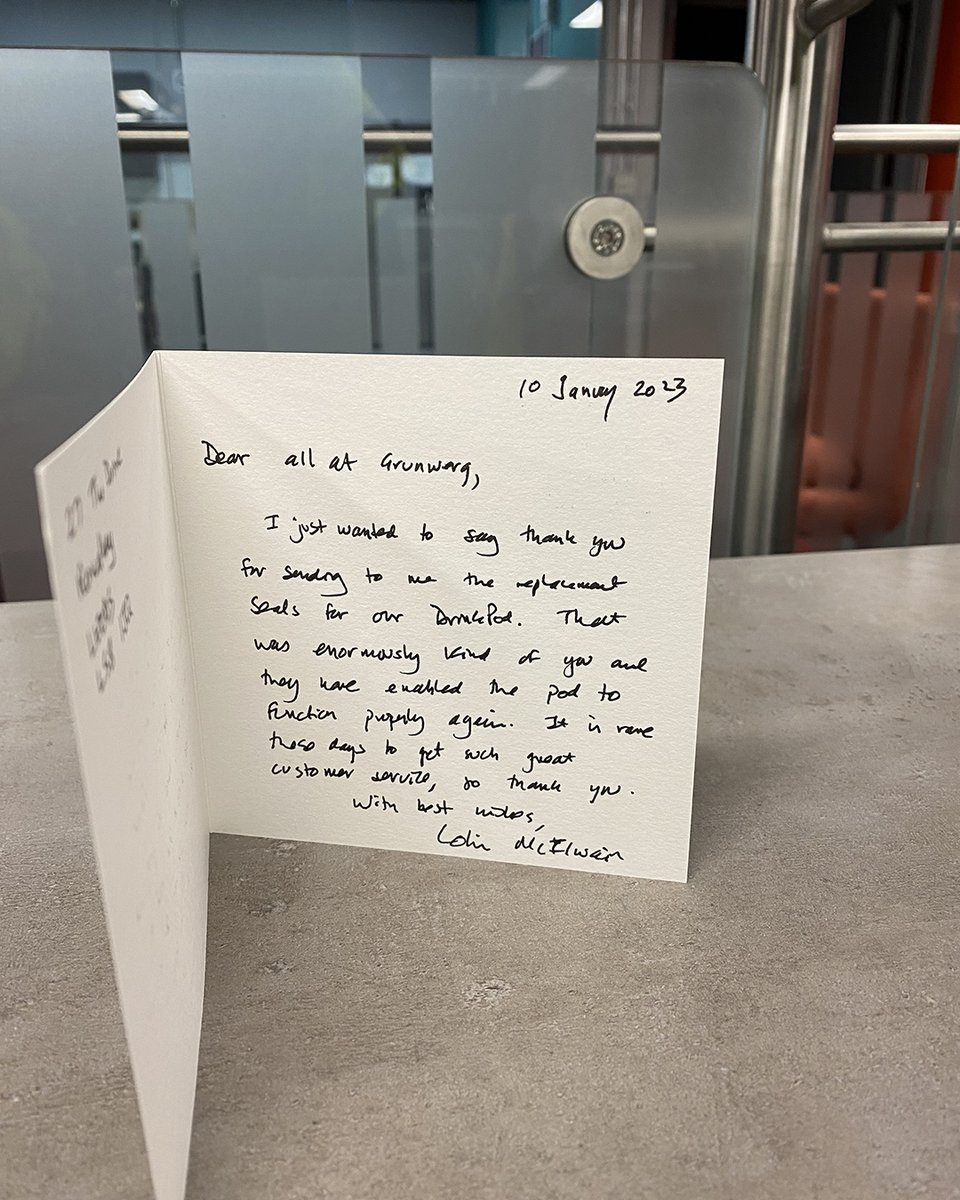 10 January 2023
Dear all at Grunwerg,
I just wanted to say thank you
for sending to me the replacement
seals for our DrinkPod. That
was enormously kind of you and
they have enabled the pod to
function properly again. It is rare
these days to get such great
customer service, so thank you.
With best wishes,
Colin McElwain